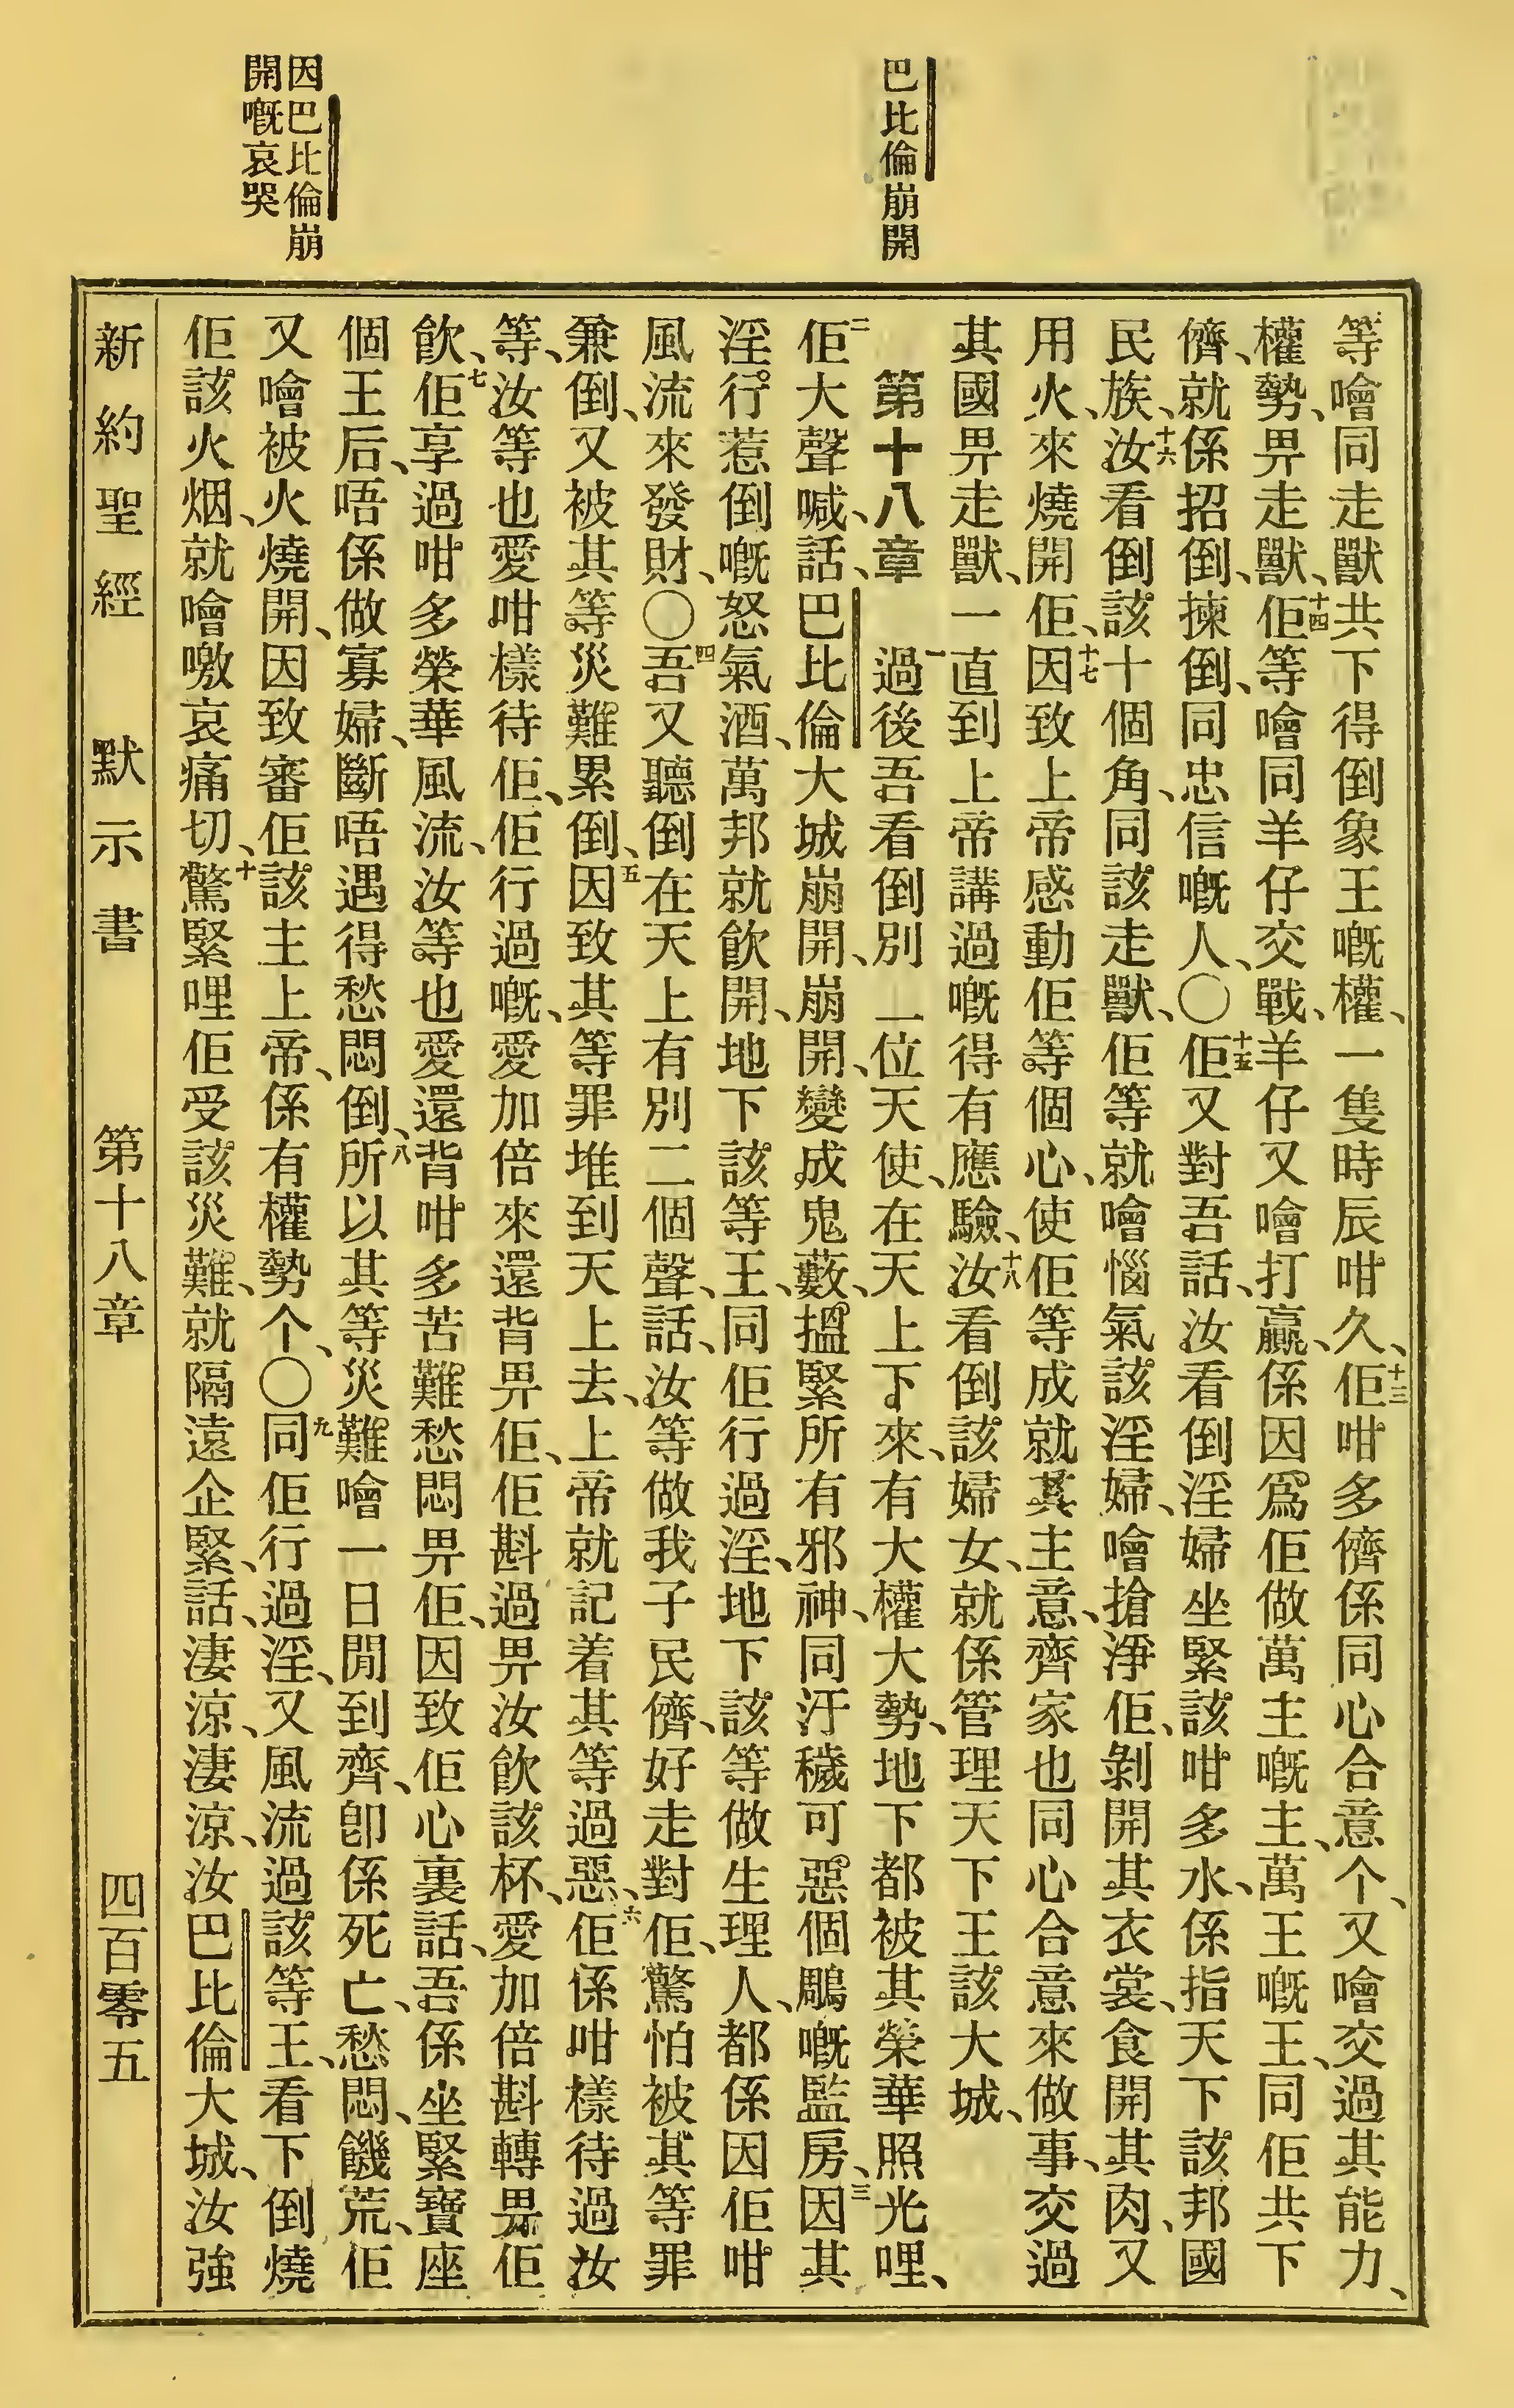 巴比倫崩開
因巴比倫崩
開嘅哀哭
等噲同走獸共下得倒象王嘅權、一隻時辰咁久、十三佢咁多儕係同心合意个、又噲交過其能力、
權勢、畀走獸、十四佢等噲同羊仔交戰、羊仔又噲打贏、係因爲佢做萬主嘅主、萬王嘅王、同佢共下
儕、就係招倒、揀倒、同忠信嘅人、〇十五佢又對吾話、汝看倒淫婦坐緊該咁多水、係指天下該邦國
民族、十六汝看倒該十個角、同該走獸、佢等就噲惱氣該淫婦、噲搶淨佢、剝開其衣裳、食開其肉、又
用火、來燒開佢、十七因致上帝感動佢等個心、使佢等成就其主意、齊家也同心合意來做事、交過
其國畀走獸、一直到上帝講過嘅得有應驗、十八汝看倒該婦女、就係管理天下王該大城、
第十八章 一過後吾看倒別一位天使、在天上下來、有大權大勢、地下都被其榮華照光哩、
二佢大聲喊、話、巴比倫大城崩開、崩開、變成鬼藪、搵緊所有邪神、同汙穢可惡個鵰嘅監房、三因其
淫行惹倒嘅怒氣酒、萬邦就飲開、地下該等王、同佢行過淫、地下該等做生理人、都係因佢咁
風流來發財、〇四吾又聽倒在天上有別二個聲、話、汝等做我子民儕、好走對佢、驚怕被其等罪
兼倒、又被其等災難累倒、五因致其等罪堆到天上去、上帝就記着其等過惡、六佢係咁樣待過汝
等、汝等也愛咁樣待佢、佢行過嘅、愛加倍來還背畀佢、佢斟過畀汝飲該杯、愛加倍斟轉畀佢
飲、七佢享過咁多榮華風流、汝等也愛還背咁多苦難愁悶畀佢、因致佢心裏話、吾係坐緊寶座
個王后、唔係做寡婦、斷唔遇得愁悶倒、八所以其等災難噲一日閒到齊、卽係死亡、愁悶、饑荒、佢
又噲被火燒開、因致審佢該主上帝、係有權勢个、〇九同佢行過淫、又風流過該等王、看下倒燒
佢該火烟、就噲噭哀痛切、十驚緊哩佢受該災難、就隔遠企緊、話、淒涼、淒涼、汝巴比倫大城、汝強
新約聖經 默示書 第十八章 四百零五